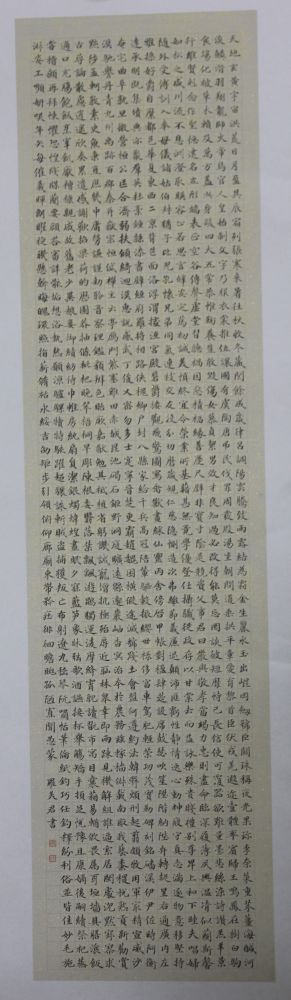 天地玄黃宇宙洪荒日月盈昃辰宿列張寒來暑往秋收冬藏閏餘成歲律呂調陽雲騰致雨露結為霜金生麗水玉出崑岡劍號巨闕珠稱夜光果珍李柰菜重芥薑海鹹河
淡鱗潛羽翔龍師火帝鳥官人皇始制文字乃服衣裳推位讓國有虞陶唐弔民伐罪周發殷湯坐朝問道垂拱平章愛育黎首臣伏戎羌遐邇壹體率賓歸王鳴鳳在樹白駒
食場化被草木賴及萬方蓋此身髮四大五常恭惟鞠養豈敢毀傷女慕貞絜男效才良知過必改得能莫忘罔談彼短靡恃己長信使可覆器欲難量墨悲絲染詩讚羔羊景
行維賢剋念作聖德建名立形端表正空谷傳聲虛堂習聽禍因惡積福緣善慶尺璧非寶寸陰是競資父事君曰嚴與敬孝當竭力忠則盡命臨深履薄夙興溫凊似蘭斯馨
如松之盛川流不息淵澄取映容止若思言辭安定篤初誠美慎終宜令榮業所基籍甚無竟學優登仕攝職從政存以甘棠去而益詠樂殊貴賤禮別尊卑上和下睦夫唱婦
隨外受傅訓入奉母儀諸姑伯叔猶子比兒孔懷兄弟同氣連枝交友投分切磨箴規仁慈隱惻造次弗離節義廉退顛沛匪虧性靜情逸心動神疲守真志滿逐物意移堅持
雅操好爵自縻都邑華夏東西二京背邙面洛浮渭據涇宮殿盤鬱樓觀飛驚圖寫禽獸畫彩仙靈丙舍傍啟甲帳對楹肆筵設席鼓瑟吹笙升階納陛弁轉疑星右通廣內左
達承明既集墳典亦聚群英杜稿鍾隸漆書壁經府羅將相路俠槐卿戶封八縣家給千兵高冠陪輦驅轂振纓世祿侈富車駕肥輕策功茂實勒碑刻銘磻溪伊尹佐時阿衡
奄宅曲阜微旦孰營桓公匡合濟弱扶傾綺迴漢惠說感武丁俊乂密勿多士寔寧晉楚更霸趙魏困橫假途滅虢踐土會盟何遵約法韓弊煩刑起翦頗牧用軍最精宣威沙
漠馳譽丹青九州禹跡百郡秦并嶽宗恆岱禪主云亭雁門紫塞雞田赤城昆池碣石鉅野洞庭曠遠綿邈巖岫杳冥治本於農務茲稼穡俶載南畝我藝黍稷稅熟貢新勸賞
黜陟孟軻敦素史魚秉直庶幾中庸勞謙謹敕聆音察理鑑貌辨色貽厥嘉猷勉其祗植省躬譏誡寵增抗極殆辱近恥林皋幸即兩疏見機解組誰逼索居閑處沉默寂寥求
古尋論散慮逍遙欣奏累遣慼謝歡招渠荷的歷園莽抽條枇杷晚翠梧桐早凋陳根委翳落葉飄颻遊鵾獨運凌摩絳霄耽讀翫市寓目囊箱易輶攸畏屬耳垣牆具膳餐飯
適口充腸飽飫烹宰飢厭糟糠親戚故舊老少異糧妾御績紡侍巾帷房紈扇圓潔銀燭煒煌晝眠夕寐藍筍象床絃歌酒讌接杯舉觴矯手頓足悅豫且康嫡後嗣續祭祀蒸
嘗稽顙再拜悚懼恐惶牋牒簡要顧答審詳骸垢想浴執熱願涼驢騾犢特駭躍超驤誅斬賊盜捕獲叛亡布射遼丸嵇琴阮嘯恬筆倫紙鈞巧任釣釋紛利俗並皆佳妙毛施
淑姿工顰妍笑年矢每催曦暉朗曜璇璣懸斡晦魄環照指薪修祜永綏吉劭矩步引領俯仰廊廟束帶矜莊徘徊瞻眺孤陋寡聞愚蒙 君書